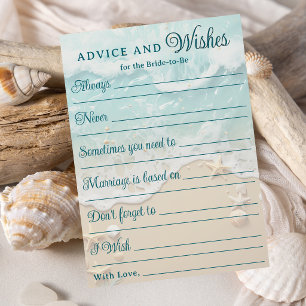 ADVICE AND Wishes
for the Bride-to-Be
Always
Never
Sometimes you need to
Marriage is based on
Don't forget to
I Wish
With Love,